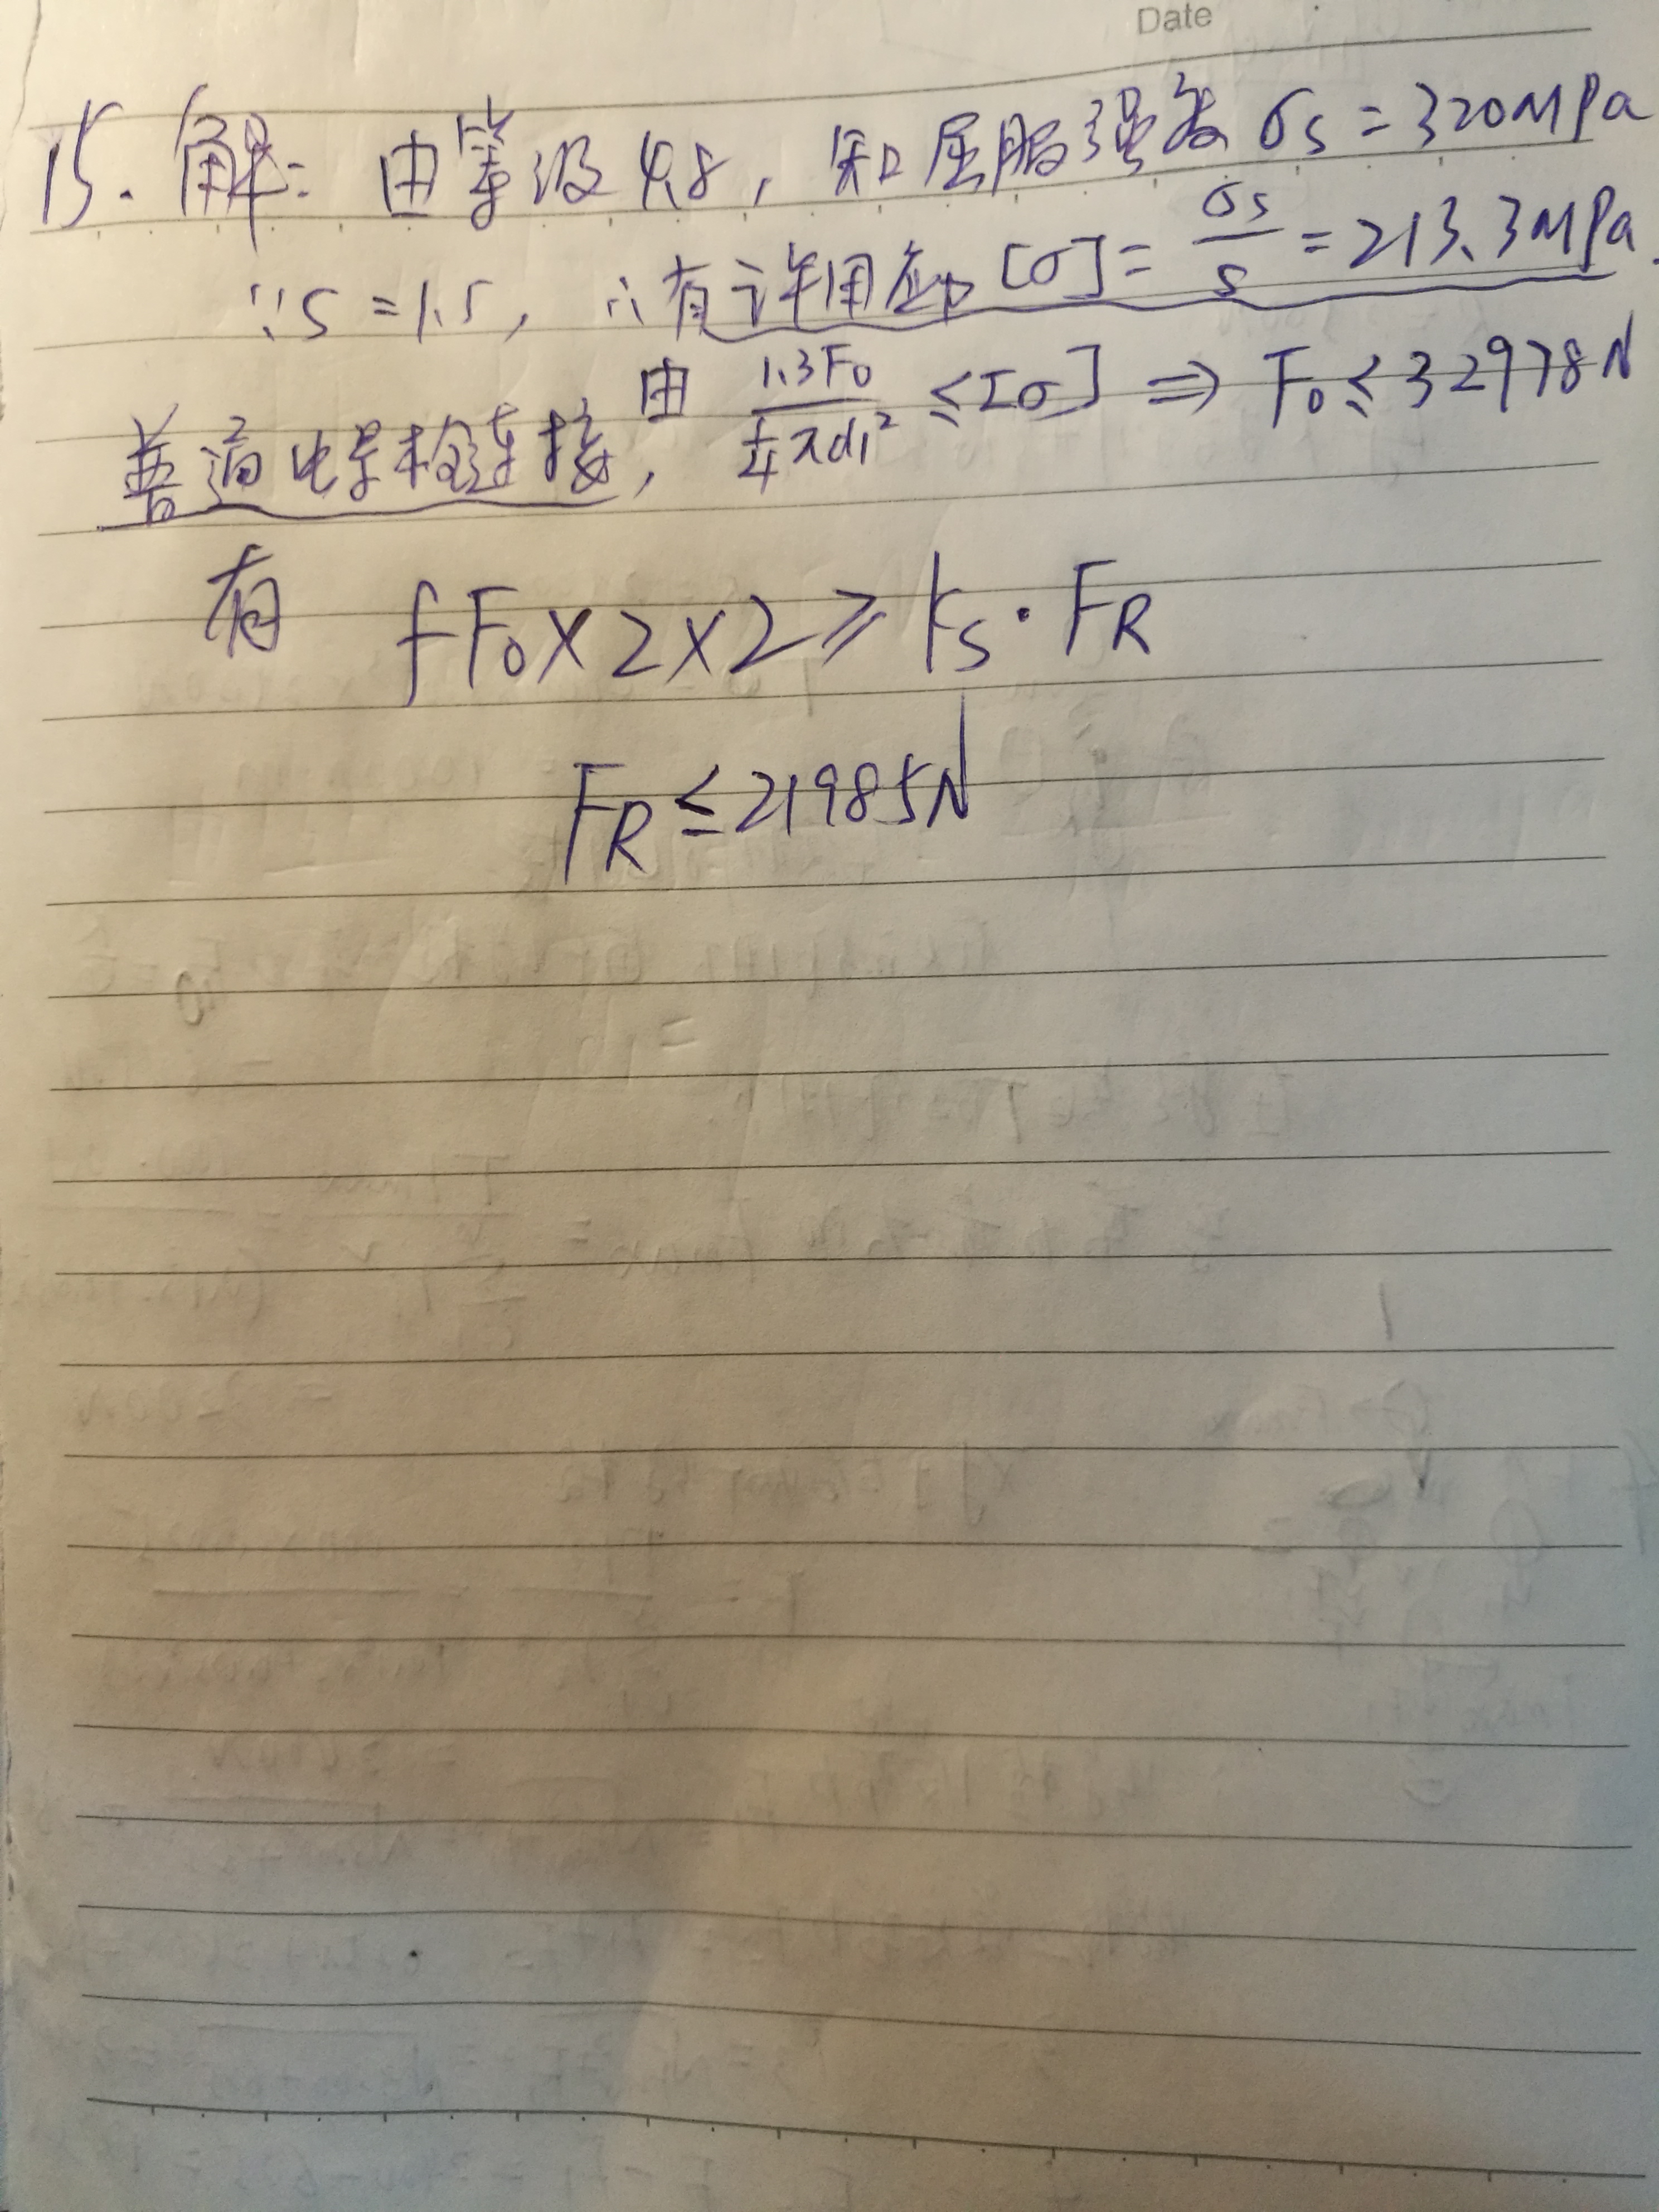 Date
15. 解: 由等级4.8, 知屈服强度 σs = 320MPa
∵S = 1.5, ∴有许用应力 [σ] = σs/S = 213.3MPa.
普通螺栓连接, 由 1.3F0 / (1/4 πd1²) ≤ [σ] ⇒ F0 ≤ 32978N
有 fF0×2×2 ≥ ks·FR
FR ≤ 21985N